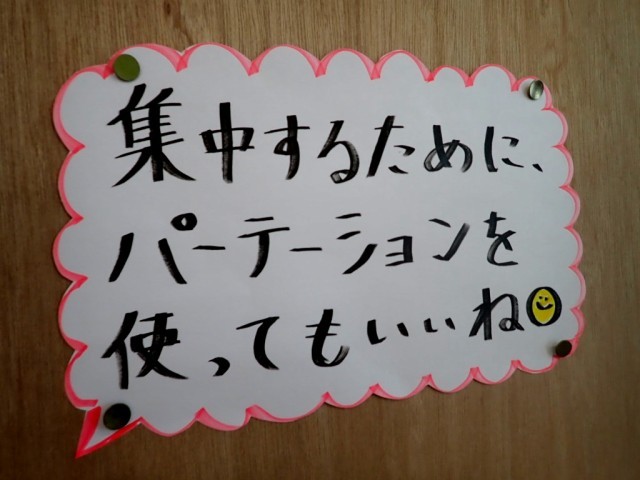 集中するために、
パーテーションを
使ってもいいね